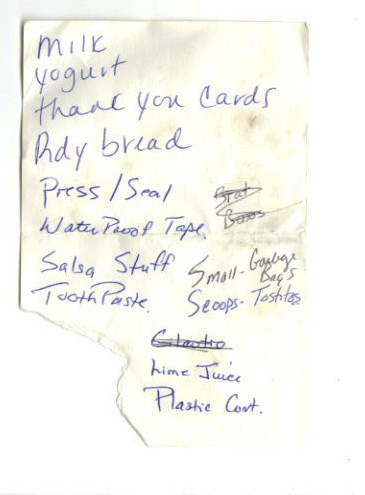 Milk
yogurt
thank you Cards
Rdy bread
Press/Seal
Brat
Buns
WaterProof Tape.
Salsa Stuff
Small- Garbage
Bags
ToothPaste.
Scoops- Tostitos
Cilantro
Lime Juice
Plastic Cont.